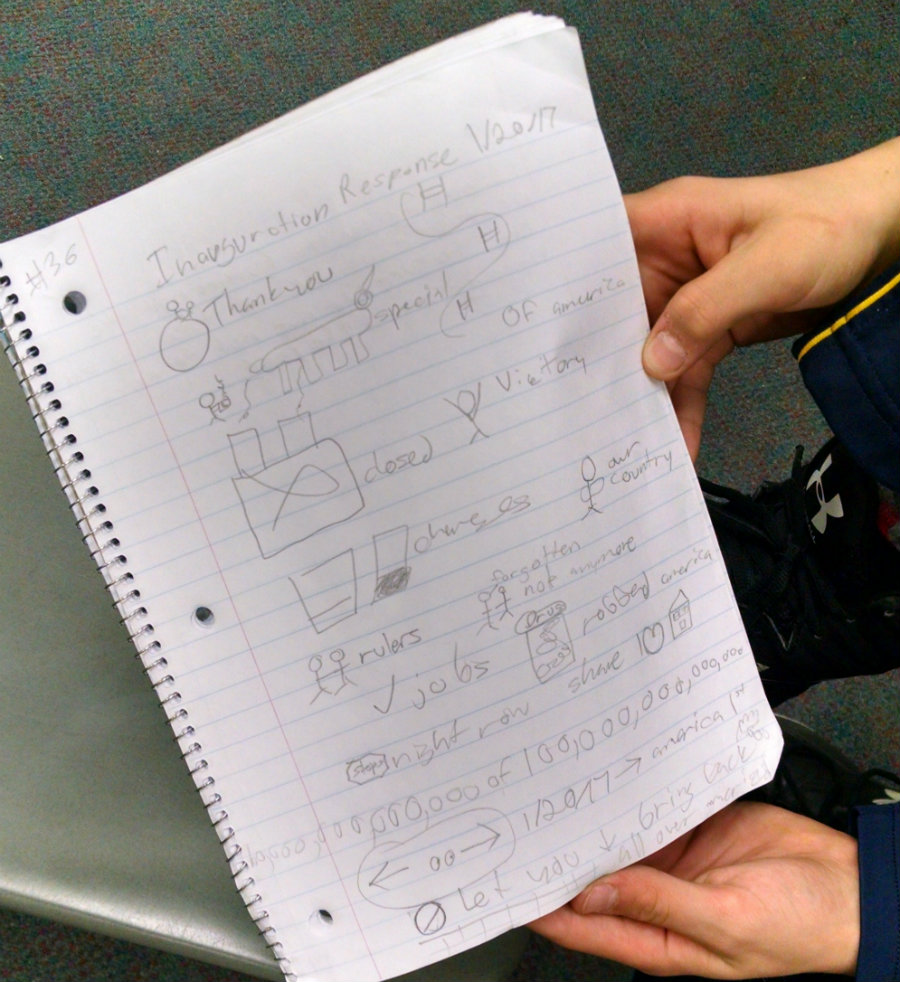 #36
Inauguration Response 1/20/17
Thank you
special
H
H
H
of america
closed
Victory
changes
our
country
forgotten
not anymore
rulers
✓ jobs
Drugs
robbed america
share
stop right now
000,000,000 of 100,000,000,000,000,000
← 00 → 1/20/17 → america 1st
Let you ↓ bring back
all over america